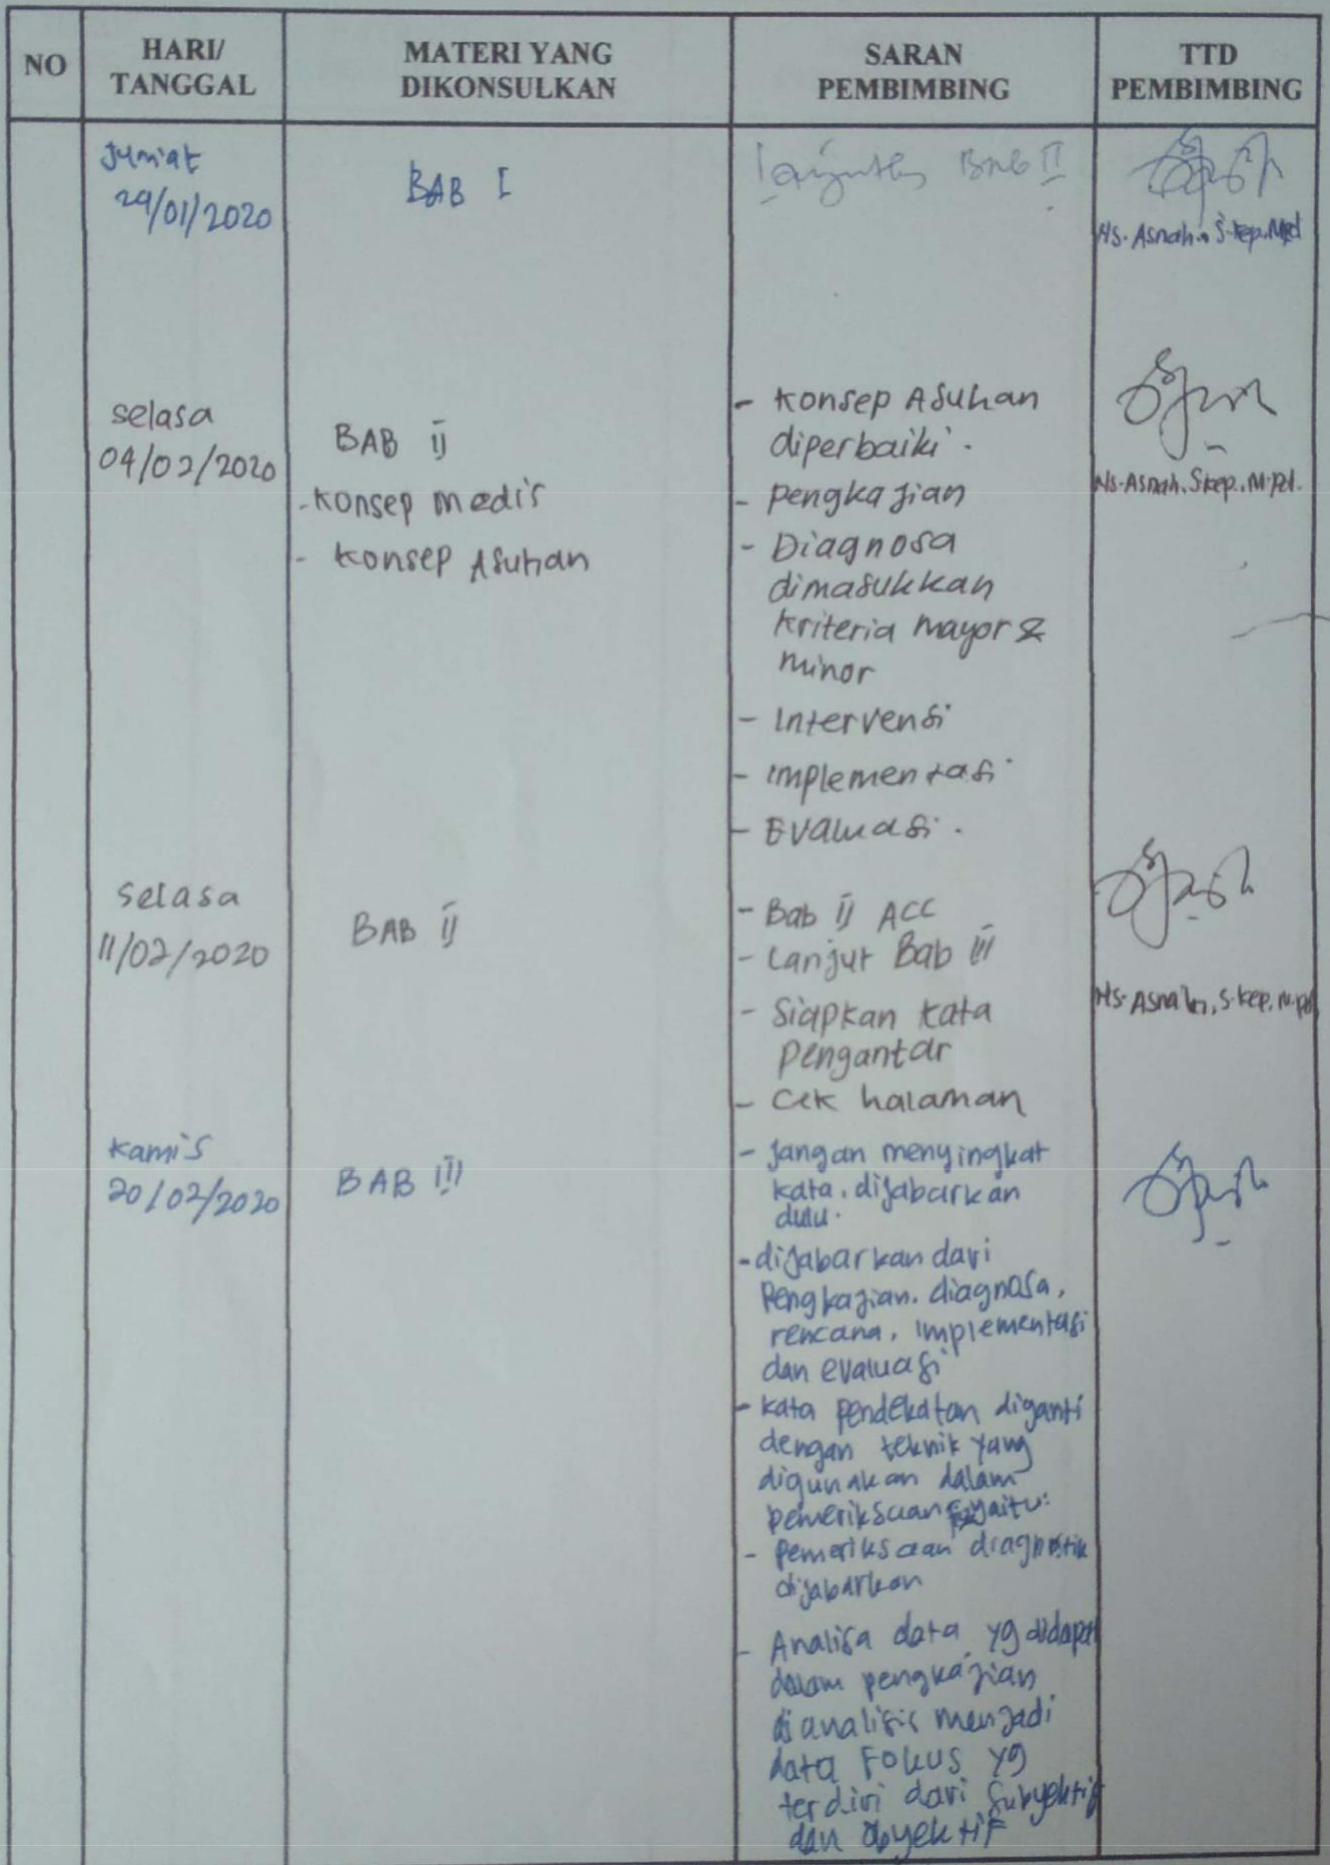 NO
HARI/
TANGGAL
MATERI YANG
DIKONSULKAN
SARAN
PEMBIMBING
TTD
PEMBIMBING
Jumat
29/01/2020
BAB I
BAB II
Ns. Asnah. S.kep. M.pd
selasa
04/02/2020
BAB II
- Konsep medis
- Konsep Asuhan
- Konsep Asuhan
diperbaiki.
- pengkajian
- Diagnosa
dimasukkan
kriteria mayor &
minor
- Intervensi
- implementasi
- Evaluasi.
Ns. Asnah. Skep. M.pd.
selasa
11/02/2020
BAB II
- Bab II ACC
- Lanjut Bab III
- Siapkan kata
pengantar
- Cek halaman
Ns. Asnah, S.kep, M.pd
kamis
20/02/2020
BAB III
- Jangan menyingkat
kata. dijabarkan
dulu.
- dijabarkan dari
Pengkajian. diagnosa,
rencana, implementasi
dan evaluasi
- kata pendekatan diganti
dengan teknik yang
digunakan dalam
pemeriksaan yaitu:
- pemeriksaan diagnostik
dijabarkan
- Analisa data yg didapat
dalam pengkajian
dianalisis menjadi
data Fokus yg
terdiri dari Subyektif
dan obyektif